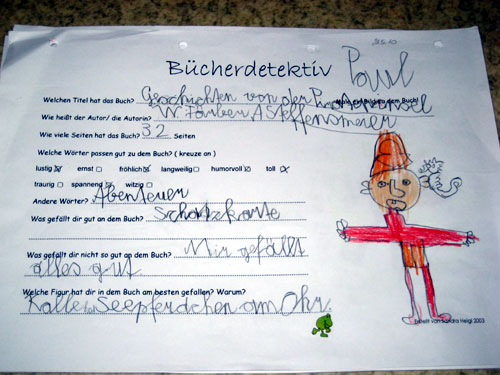 25.10
Bücherdetektiv Paul
Welchen Titel hat das Buch? Geschichten von der Pirateninsel
Wie heißt der Autor/ die Autorin? W. Färber/A Steffensmeier
Wie viele Seiten hat das Buch? 32 Seiten
Welche Wörter passen gut zu dem Buch? ( kreuze an )
lustig ernst fröhlich langweilig humorvoll toll
traurig spannend witzig
Andere Wörter? Abenteuer
Was gefällt dir gut an dem Buch? Schatzkarte
Was gefällt dir nicht so gut an dem Buch? Mir gefällt
alles gut
Welche Figur hat dir in dem Buch am besten gefallen? Warum?
Kalle Seepferdchen am Ohr.
Erstellt von Sandra Heigl 2003